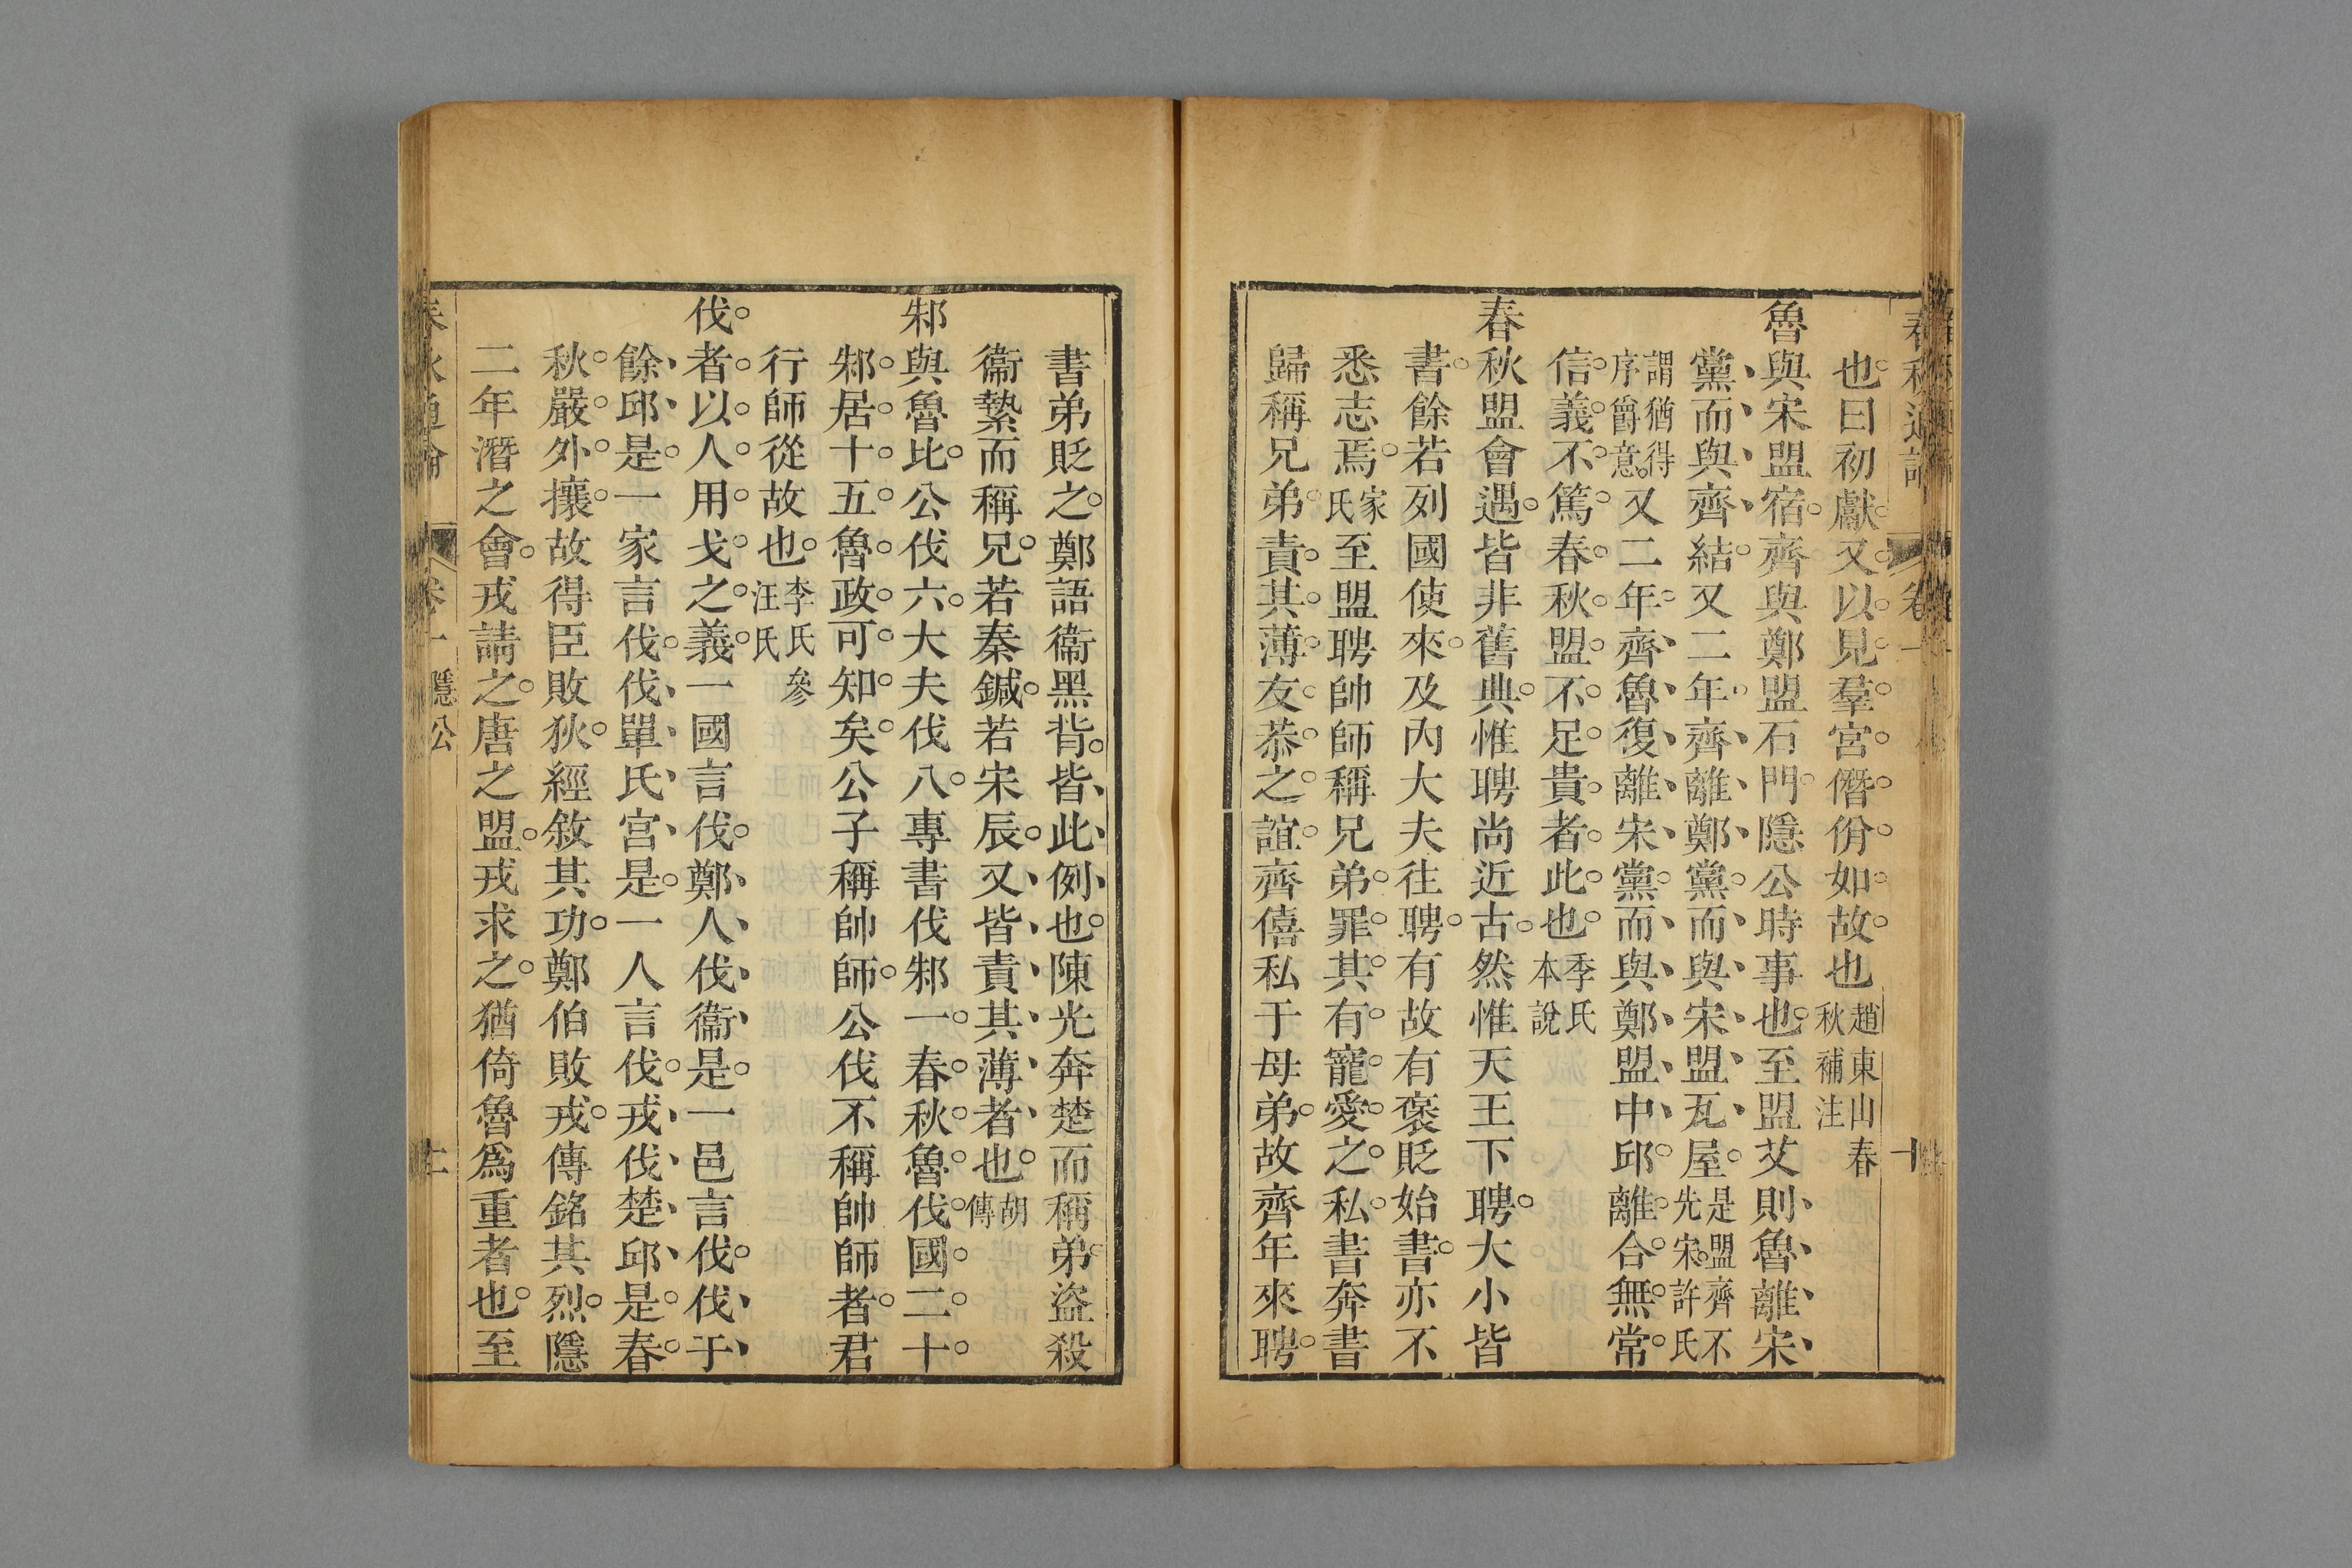 春秋通論
卷一
十
也曰初獻又以見羣宮僭佾如故也趙東山春秋補注
魯與宋盟宿齊與鄭盟石門隱公時事也至盟艾則魯離宋
黨而與齊結又二年齊離鄭黨而與宋盟瓦屋是盟齊不先宋許氏
謂猶得序爵意又二年齊魯復離宋黨而與鄭盟中邱離合無常
信義不篤春秋盟不足貴者此也季氏本說
春秋盟會遇皆非舊典惟聘尚近古然惟天王下聘大小皆
書餘若列國使來及內大夫往聘有故有褒貶始書亦不
悉志焉家氏至盟聘帥師稱兄弟罪其有寵愛之私書奔書
歸稱兄弟責其薄友恭之誼齊僖私于母弟故齊年來聘
書弟貶之鄭語衞黑背皆此例也陳光奔楚而稱弟盜殺
衞縶而稱兄若秦鍼若宋辰又皆責其薄者也胡傳
邾與魯比公伐六大夫伐八專書伐邾一春秋魯伐國二十
邾居十五魯政可知矣公子稱帥師公伐不稱帥師者君
行師從故也李氏汪氏參
伐者以人用戈之義一國言伐鄭人伐衞是一邑言伐伐于
餘邱是一家言伐伐單氏宮是一人言伐戎伐楚邱是春
秋嚴外攘故得臣敗狄經敘其功鄭伯敗戎傳銘其烈隱
二年潛之會戎請之唐之盟戎求之猶倚魯爲重者也至
春秋通論
卷一 隱公